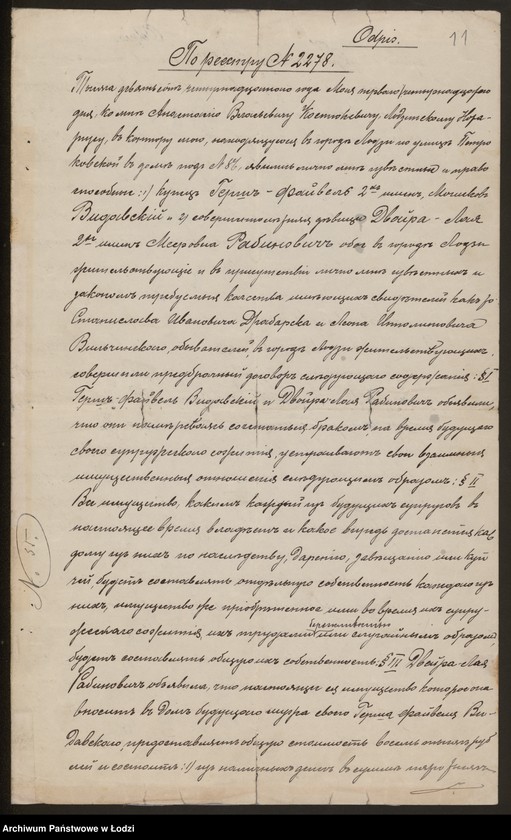 Odpis.
11
По реестру № 2278.
Тысяча девятьсот четырнадцатого года Мая первого/четырнадцатого
дня, ко мне Антонию Костевичу Лодзинскому Нота-
риусу, в контору мою, находящуюся в городе Лодзи по улице Петро
ковской в доме под № 86, явились лично мне известные и право
способные: 1/ купец Герш-Файвель 2ух имен, Мошков
Видавский и 2/ совершеннолетняя девица Двойра-Лая
2ух имен Мееровна Рабинович оба в городе Лодзи
жительствующие и в присутствии лично мне известных и
законом требуемые качества имеющих свидетелей
Станислава Ивановича и Леона
Вильчинского, обывателей, в городе Лодзи жительствующих,
совершили предбрачный договор следующего содержания: § I
Герш-Файвель Видавский и Двойра-Лая Рабинович объявили,
что они намереваясь сочетаться браком, на время будущего
своего супружеского сожития, устраивают свои взаимныя
имущественныя отношения следующим образом: § II
Все имущество, каким каждый из будущих супругов в
настоящее время владеет и какое впредь достанется каж
дому из них по наследству, дарению, завещанию или куп
чей, будет составлять отдельную собственность каждого из
них, имущество же приобретенное ими во время их супру-
жеского сожития их трудами или случайным образом,
будет составлять общую их собственность. § III Двойра-Лая
Рабинович объявила, что настоящее ея имущество которое она
вносит в дом будущего мужа своего Герша Файвеля Ви-
давского, представляет общую стоимость восемь тысяч руб
лей и состоит: 1/ из наличных денег в сумме
N. 31.
Archiwum Państwowe w Łodzi